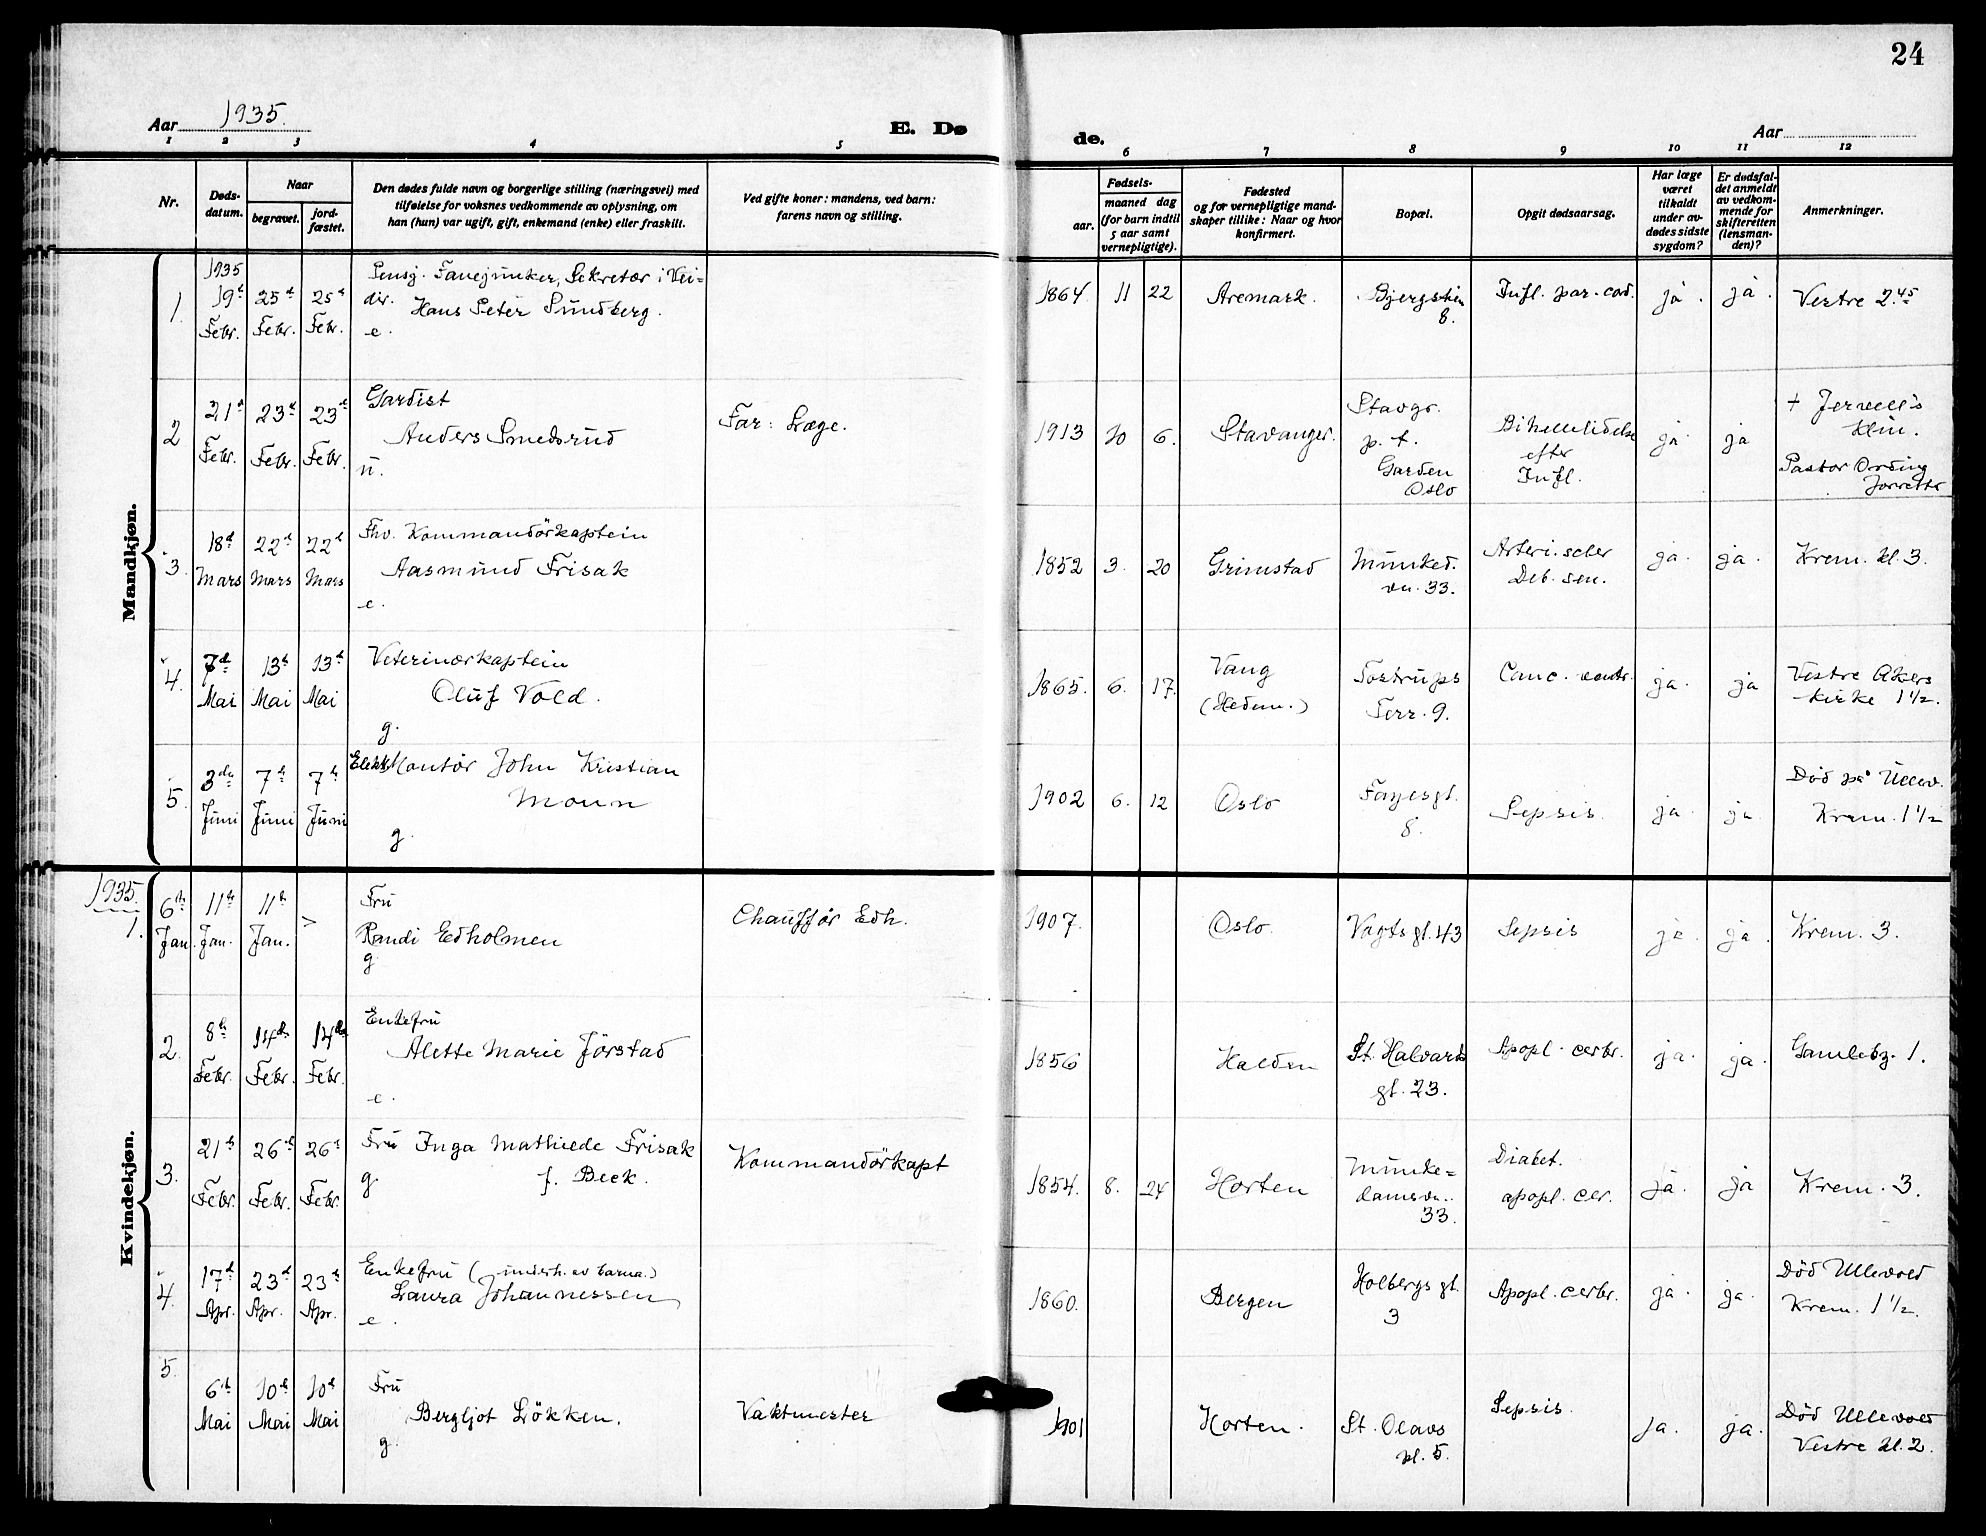 24
Aar 1935.
E. Dø
de.
Aar
1 2 3 4 5
6 7 8 9 10 11 12
Nr.
Døds-
datum.
Naar
begravet.
jord-
fæstet.
Den dødes fulde navn og borgerlige stilling (næringsvei) med
tilføielse for voksnes vedkommende av oplysning, om
han (hun) var ugift, gift, enkemand (enke) eller fraskilt.
Ved gifte koner: mandens, ved barn:
farens navn og stilling.
Fødsels-
aar.
maaned dag
(for barn indtil
5 aar samt
vernepligtige).
Fødested
og for vernepligtige mand-
skaper tillike: Naar og hvor
konfirmert.
Bopæl.
Opgit dødsaarsag.
Har læge
været
tilkaldt
under av-
dødes sidste
sygdom?
Er dødsfal-
det anmeldt
av vedkom-
mende for
skifteretten
(lensman-
den)?
Anmerkninger.
Mandkjøn.
1935
1. 19d Febr. 25d Febr. 25d Febr.
Pensj. Fanejunker, Sekretær i Vei-
dir. Hans Peter Sundberg.
e.
1864 11 22 Aremark. Bjergstien
8.
Infl. par. cod. ja. ja. Vestre 2.45
2 21d Febr. 23d Febr. 23d Febr.
Gardist
Anders Smedsrud
u.
Far: Læge.
1913 10 6. Stavanger.
Stavgr.
p. t.
Garden
Oslo
Bihulelidelse
efter
Infl.
ja ja
+ Jervell's
klin.
Pastor Ording
forrettr
3. 18d Mars 22d Mars 22d Mars
Fhv. Kommandörkaptein
Aasmund Frisak
e.
1852 3. 20 Grimstad
Munked.
vn. 33.
Arteri. scler
Deb. sen.
ja. ja. Krem. kl. 3.
4. 7d Mai 13d Mai 13d Mai
Veterinærkaptein
Oluf Vold.
g.
1865. 6. 17.
Vang
(Hedem.)
Tostrups
Terr. 9.
Canc. ventr. ja. ja
Vestre Akers
kirke 1 1/2.
5. 3de Juni 7d Juni 7d Juni
Elektr. Montør John Kristian
Moun
g.
1902 6. 12 Oslo
Fayesgt.
8.
Sepsis. ja. ja.
Död på Ullev.
Krem. 1 1/2
Kvindekjøn.
1935.
1. 6th Jan. 11th Jan. 11th Jan. >
Fru
Randi Edholmen
g.
Chaufför Edh.
1907. Oslo. Vogts gt. 43 Sepsis ja. ja. Krem. 3.
2. 8d Febr. 14de Febr. 14de Febr.
Enkefru
Alette Marie Jörstad
e.
1856 Halden
St. Halvards
gt. 23.
Apopl. cerbr. ja. ja. Gamlebg. 1.
3. 21d Febr. 26d Febr. 26d Febr.
Fru Inga Mathilde Frisak
g. f. Beck.
Kommandörkapt
1854. 8. 24 Horten
Munke-
damsvn.
33.
Diabet.
apopl. cer.
ja. ja Krem. 3.
4. 17d Apr. 23d Apr. 23d Apr.
Enkefru (underh. av barna.)
Laura Johannessen
e.
1860. Bergen
Holbergs gt.
3
Apopl. cerbr. ja. ja.
Död Ullevold
Krem. 1 1/2.
5. 6d Mai 10d Mai 10d Mai
Fru
Bergljot Lökken.
g.
Vaktmester
1901 Horten.
St. Olavs
pl. 5.
Sepsis. ja. ja.
Död Ullevold
Vestre kl. 2.